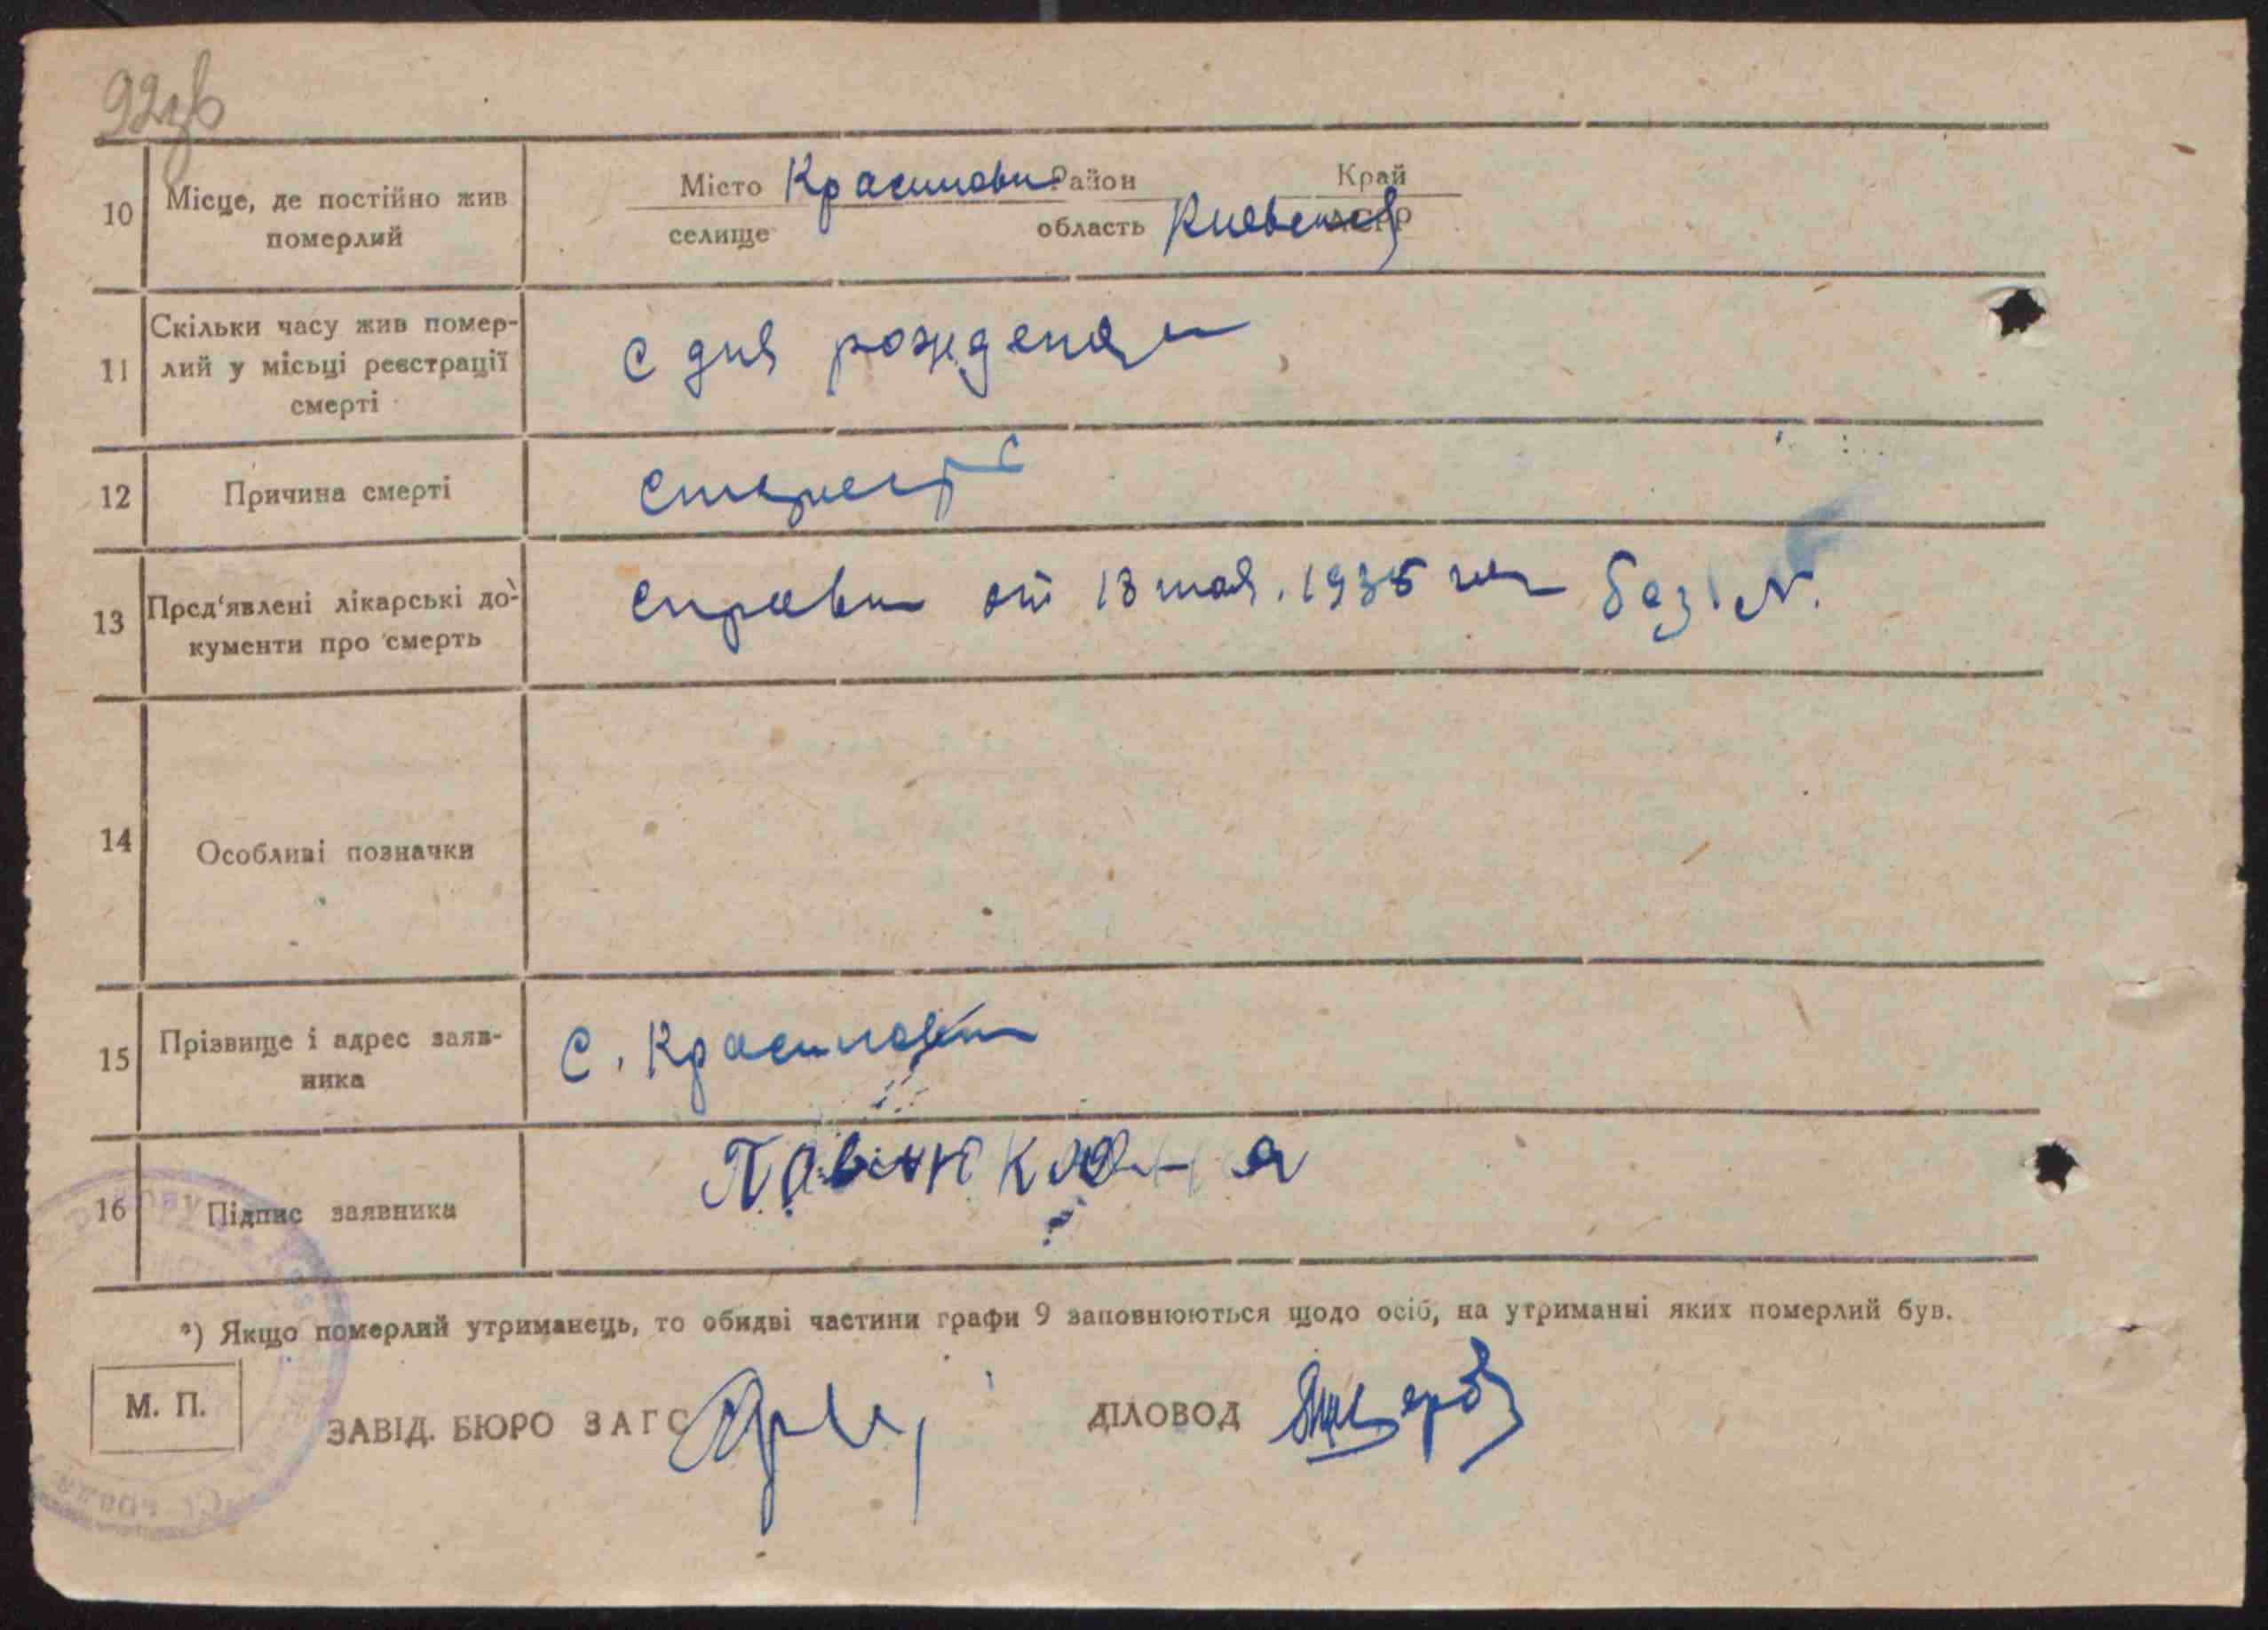 92зв
10 Місце, де постійно жив померлий
Місто Красиловки Район Край
селище область Киевской АСРР
11 Скільки часу жив помер-
лий у місьці реєстрації
смерті
с дня рождения
12 Причина смерті
старость
13 Пред'явлені лікарські до-
кументи про смерть
справки от 13 мая. 1935 без N.
14 Особливі позначки
15 Прізвище і адрес заяв-
ника
с. Красиловки
16 Підпис заявника
*) Якщо померлий утриманець, то обидві частини графи 9 заповнюються щодо осіб, на утриманні яких померлий був.
М. П.
ЗАВІД. БЮРО ЗАГС
ДІЛОВОД